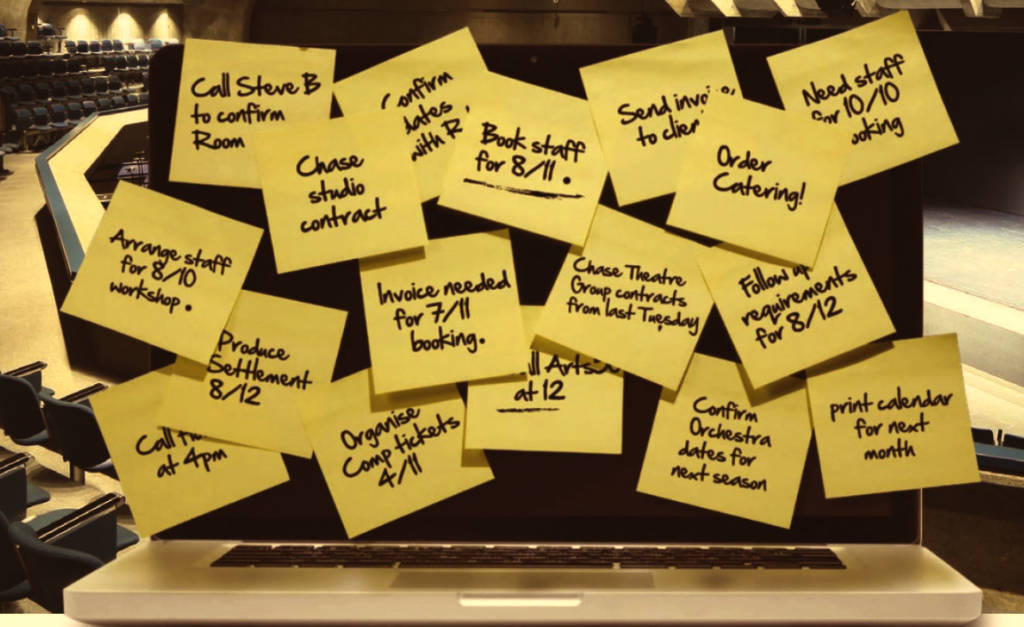 Call Steve B
to confirm
Room
with
Chase
studio
contract
Book staff
for 8/11.
Send
to
Order
Catering!
Need staff
for 10/10
Arrange staff
for 8/10
workshop.
Invoice needed
for 7/11
booking.
Chase Theatre
Group contracts
from last Tuesday
Follow up
requirements
for 8/12
Produce
Settlement
8/12
Call
at 4pm
Organise
Comp tickets
4/11
at 12
Confirm
Orchestra
dates for
next season
print calendar
for next
month